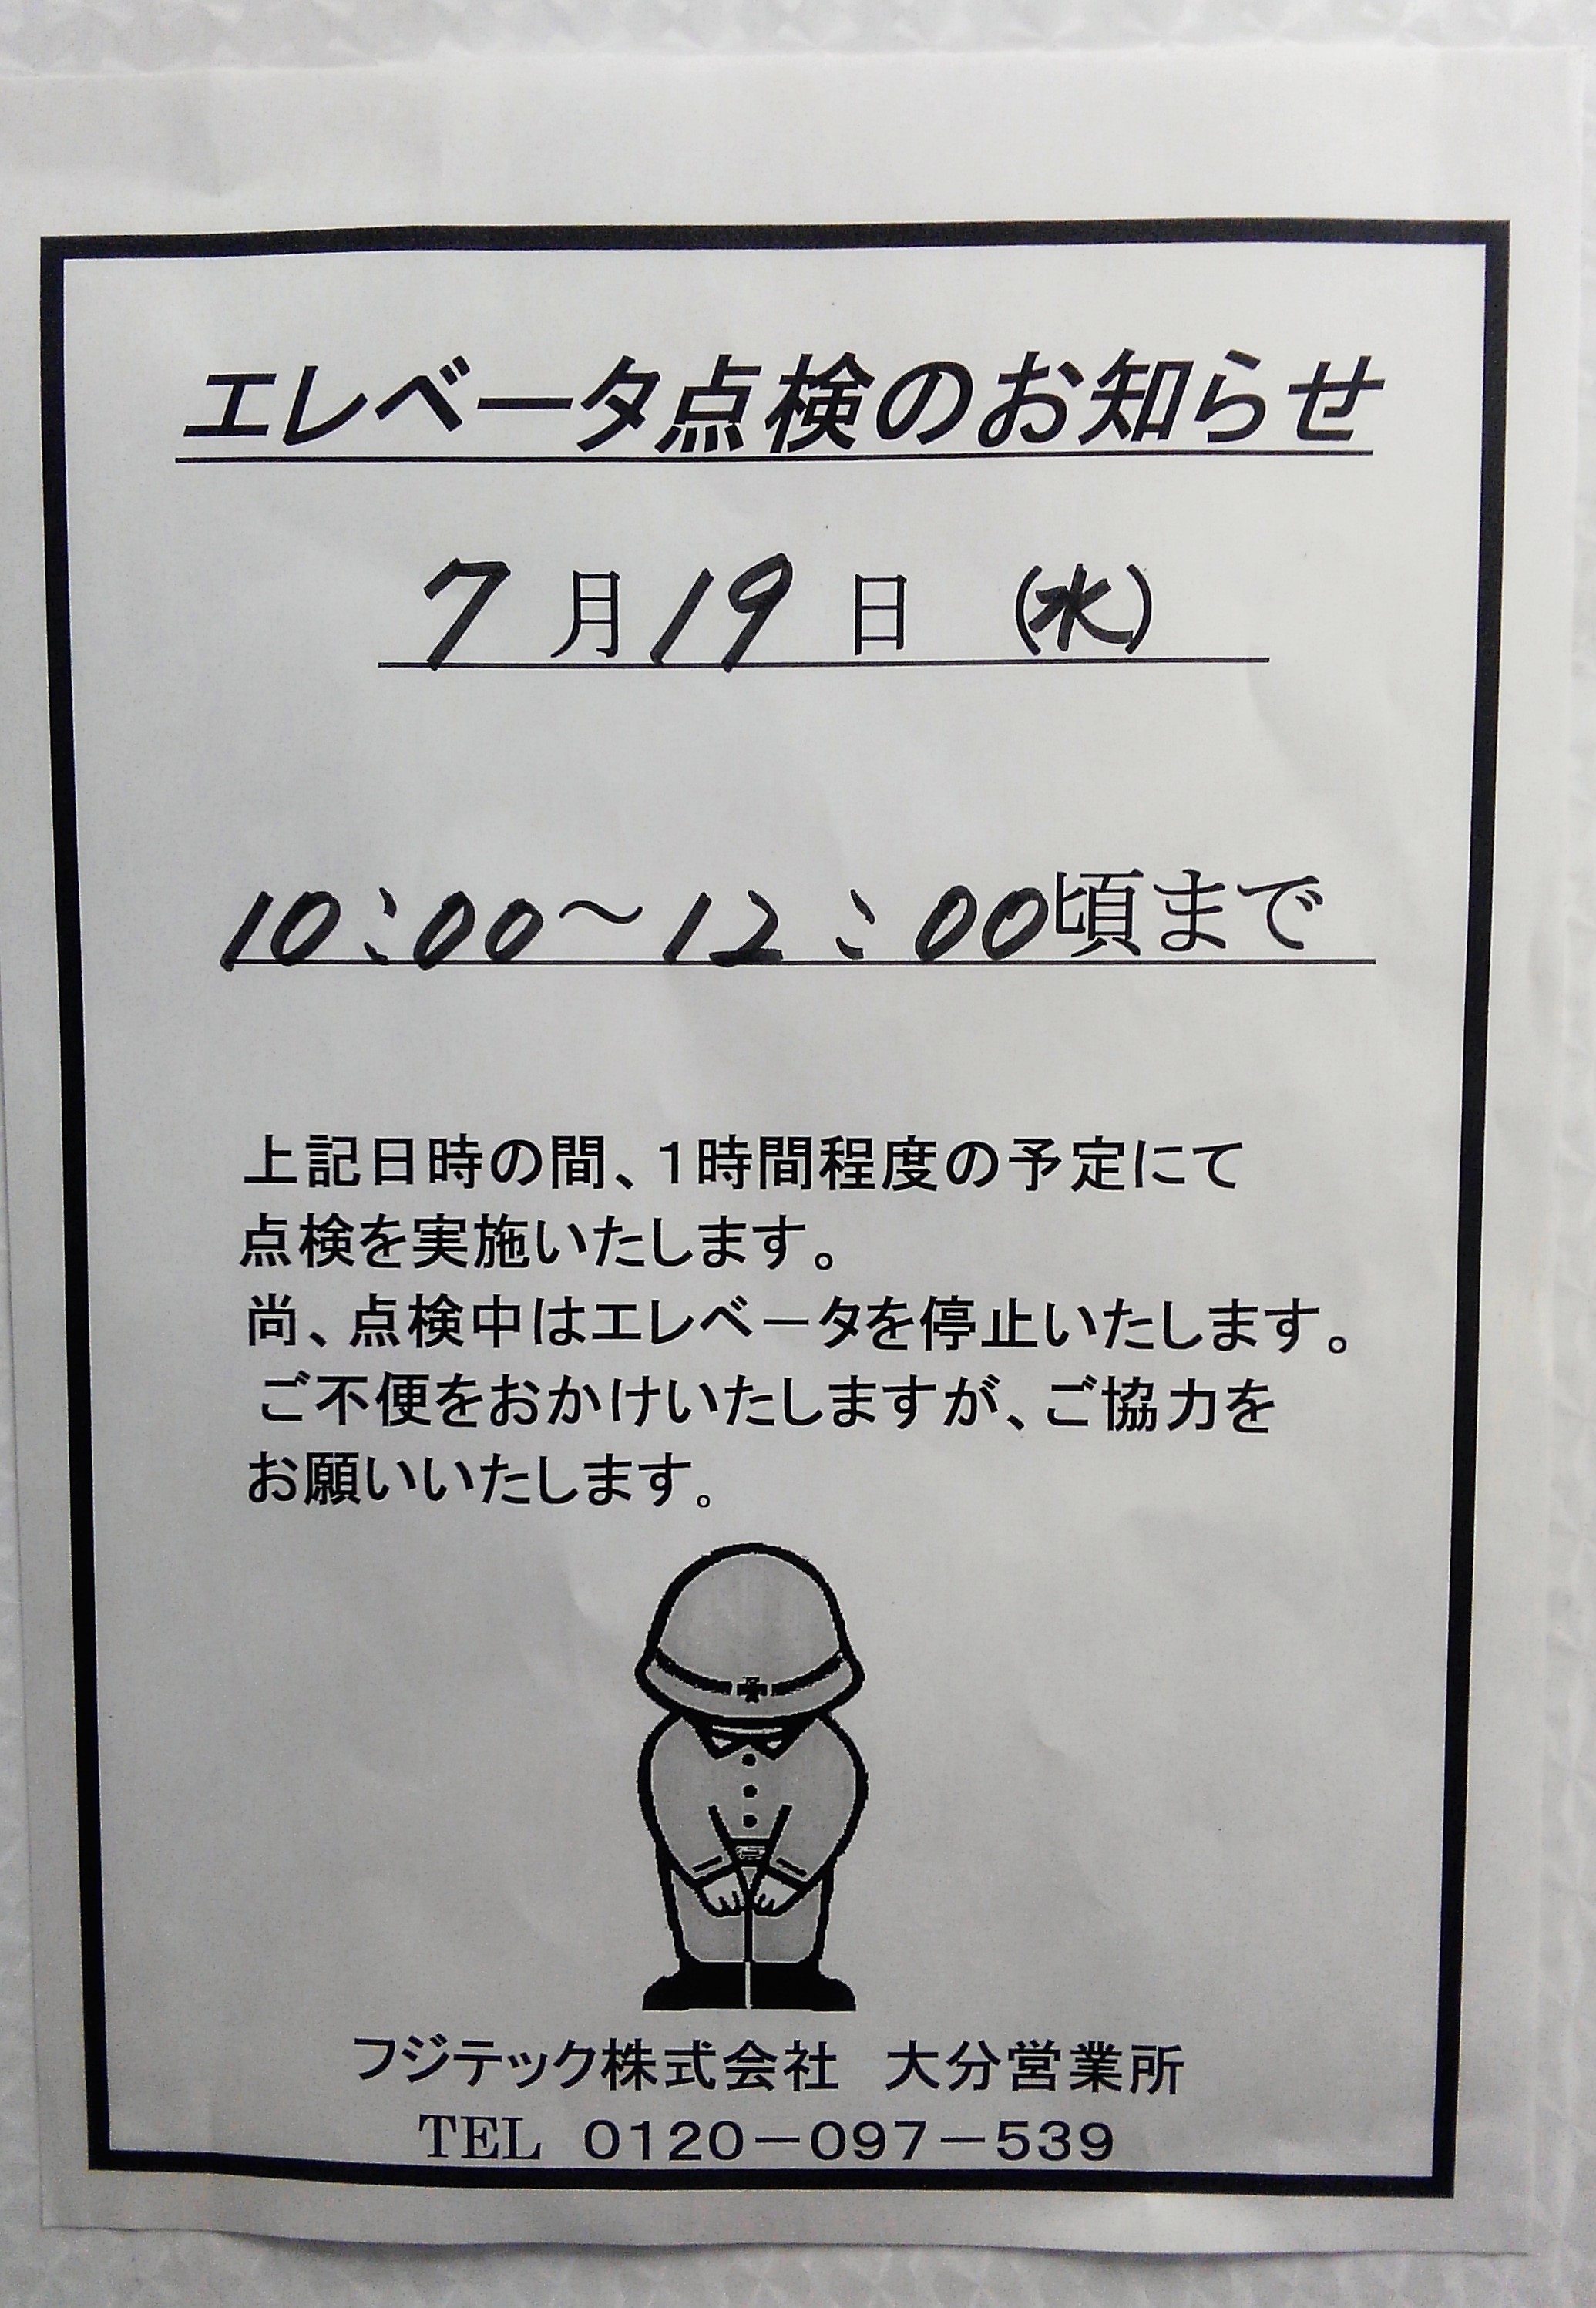 エレベータ点検のお知らせ
7月19日 (水)
10:00～12:00頃まで
上記日時の間、1時間程度の予定にて
点検を実施いたします。
尚、点検中はエレベータを停止いたします。
ご不便をおかけいたしますが、ご協力を
お願いいたします。
フジテック株式会社 大分営業所
TEL 0120－097－539